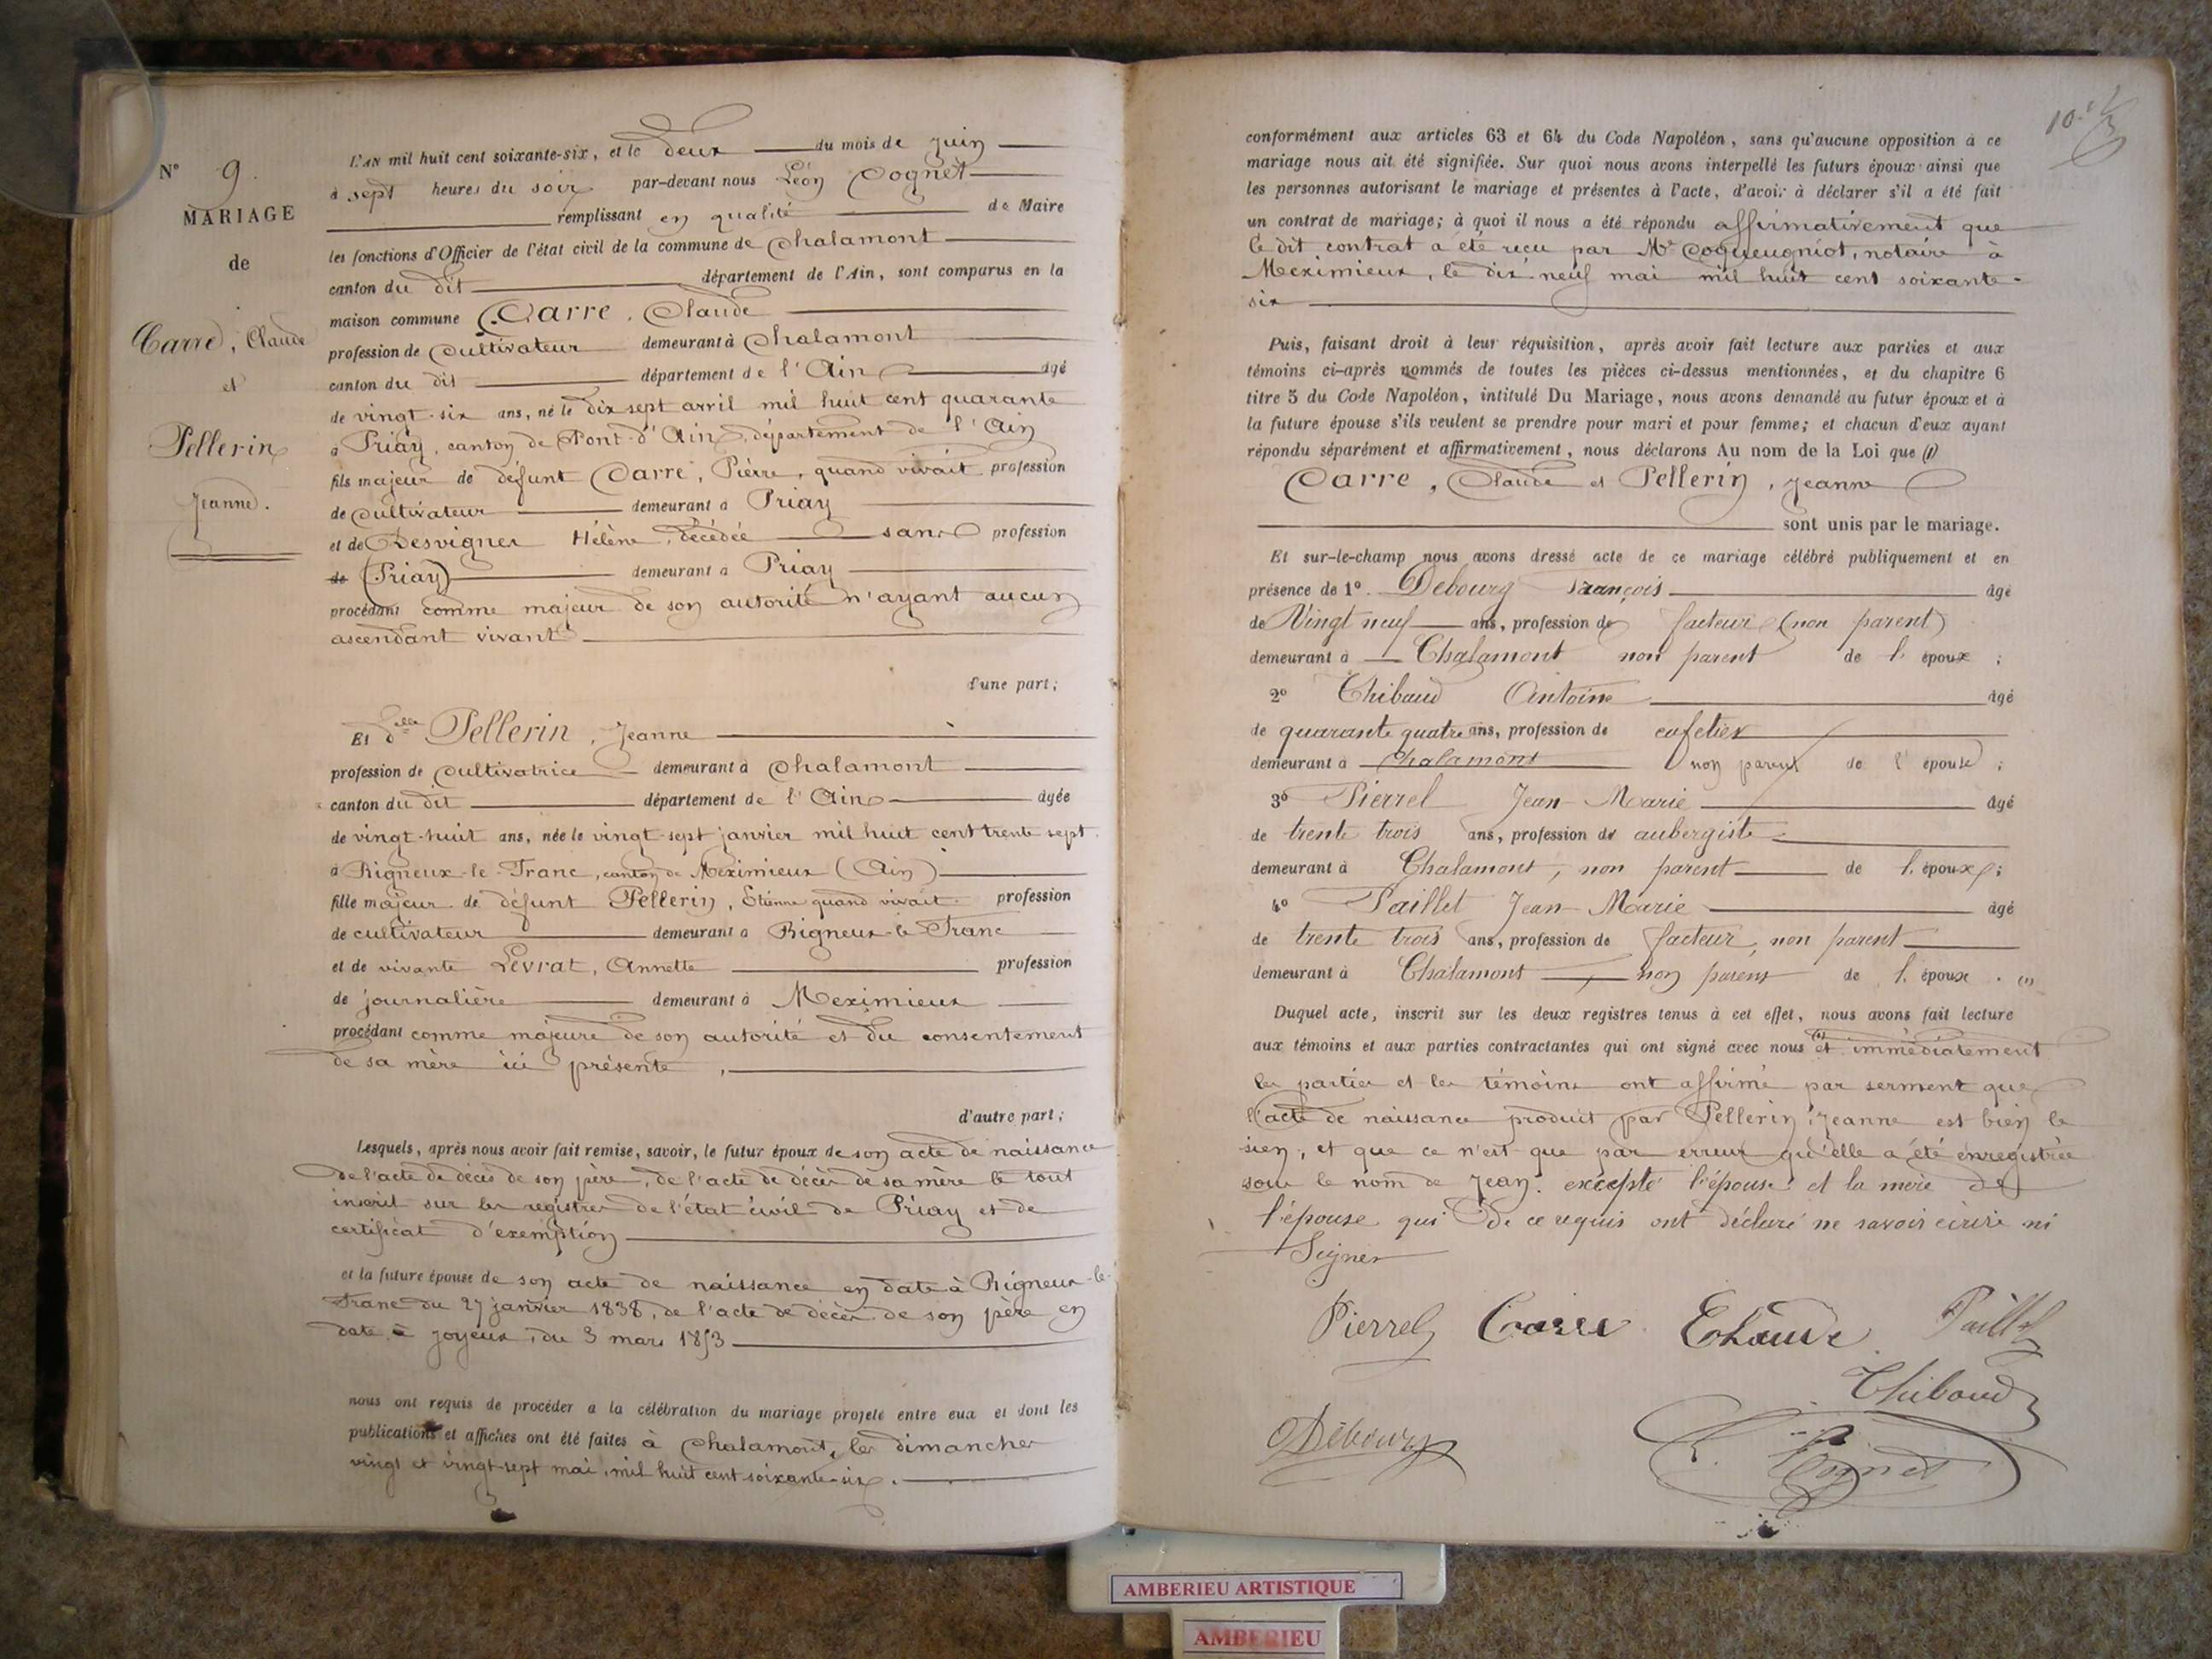 N° 9.
MARIAGE
de
Carre, Claude
et
Pellerin
Jeanne.
L'AN mil huit cent soixante-six, et le deux du mois de juin
à sept heures du soir par-devant nous Léon Cognet
remplissant en qualité de Maire
les fonctions d'Officier de l'état civil de la commune de Chalamont
canton du dit département de l'Ain, sont comparus en la
maison commune Carre, Claude
profession de cultivateur demeurant à Chalamont
canton du dit département de l'Ain âgé
de vingt-six ans, né le dix sept avril mil huit cent quarante
à Priay, canton de Pont-d'Ain, département de l'Ain
fils majeur de défunt Carre, Pierre, quand vivait profession
de cultivateur demeurant à Priay
et de Desvignes Hélène, décédée sans profession
de (Priay) demeurant à Priay
procédant comme majeur de son autorité n'ayant aucun
ascendant vivant
d'une part;
Et delle Pellerin, Jeanne
profession de cultivatrice demeurant à Chalamont
canton du dit département de l'Ain âgée
de vingt-huit ans, née le vingt-sept janvier mil huit cent trente sept
à Rigneux-le-Franc, canton de Meximieux (Ain)
fille majeur de défunt Pellerin, Etienne quand vivait profession
de cultivateur demeurant à Rigneux-le-Franc
et de vivante Levrat, Annette profession
de journalière demeurant à Meximieux
procédant comme majeure de son autorité et du consentement
de sa mère ici présente,
d'autre part;
Lesquels, après nous avoir fait remise, savoir, le futur époux de son acte de naissance
de l'acte de décès de son père, de l'acte de décès de sa mère le tout
inscrit sur les registres de l'état civil de Priay et de
certificat d'exemption
et la future épouse de son acte de naissance en date à Rigneux-le-
Franc du 27 janvier 1838, de l'acte de décès de son père en
date à Joyeux, du 3 mars 1853
nous ont requis de procéder à la célébration du mariage projeté entre eux et dont les
publications et affiches ont été faites à Chalamont, les dimanches
vingt et vingt-sept mai, mil huit cent soixante-six.
conformément aux articles 63 et 64 du Code Napoléon, sans qu'aucune opposition à ce
mariage nous ait été signifiée. Sur quoi nous avons interpellé les futurs époux ainsi que
les personnes autorisant le mariage et présentes à l'acte, d'avoir à déclarer s'il a été fait
un contrat de mariage; à quoi il nous a été répondu affirmativement que
le dit contrat a été reçu par Me Coqueugniot, notaire à
Meximieux, le dix neuf mai mil huit cent soixante-
six
Puis, faisant droit à leur réquisition, après avoir fait lecture aux parties et aux
témoins ci-après nommés de toutes les pièces ci-dessus mentionnées, et du chapitre 6
titre 5 du Code Napoléon, intitulé Du Mariage, nous avons demandé au futur époux et à
la future épouse s'ils veulent se prendre pour mari et pour femme; et chacun d'eux ayant
répondu séparément et affirmativement, nous déclarons Au nom de la Loi que (1)
Carre, Claude et Pellerin, Jeanne
sont unis par le mariage.
Et sur-le-champ nous avons dressé acte de ce mariage célébré publiquement et en
présence de 1° Debourg François âgé
de Vingt neuf ans, profession de facteur (non parent)
demeurant à Chalamont non parent de l'époux;
2° Thibaud Antoine âgé
de quarante quatre ans, profession de cafetier
demeurant à Chalamont non parent de l'épouse;
3° Pierrel Jean-Marie âgé
de trente trois ans, profession de aubergiste
demeurant à Chalamont, non parent de l'époux;
4° Paillet Jean-Marie âgé
de trente trois ans, profession de facteur, non parent
demeurant à Chalamont, non parent de l'époux. (1)
Duquel acte, inscrit sur les deux registres tenus à cet effet, nous avons fait lecture
aux témoins et aux parties contractantes qui ont signé avec nous (1) et immédiatement
les parties et les témoins ont affirmé par serment que
l'acte de naissance produit par Pellerin, Jeanne est bien le
sien, et que ce n'est que par erreur qu'elle a été enregistrée
sous le nom de Jean. excepté l'épouse et la mère de
l'épouse qui de ce requis ont déclaré ne savoir écrire ni
Signer
Pierrel Carre Paillet
Thibaud
Debourg L. Cognet
AMBERIEU ARTISTIQUE
AMBERIEU